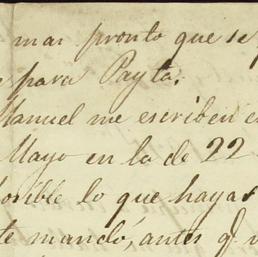 mas pronto que se
para Payta.
Manuel me escriben e
Mayo en la de 22
posible lo que hayas
te mandó, antes q.